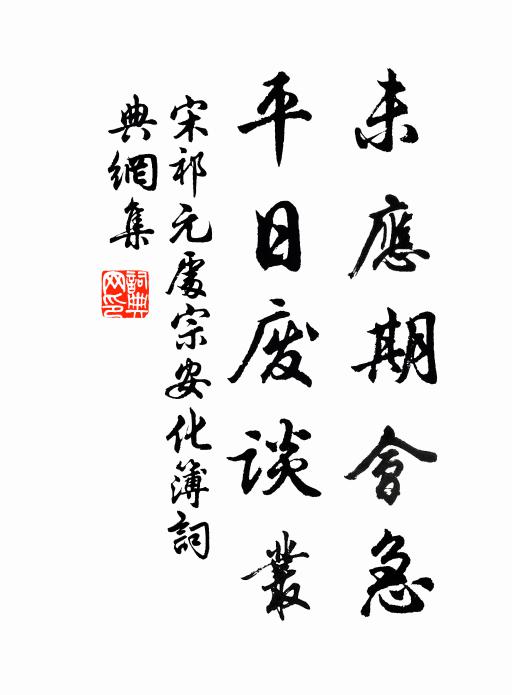 未應期會急
平日廢談叢
宋祁元處宗安化簿詞
典網集
詞典網印